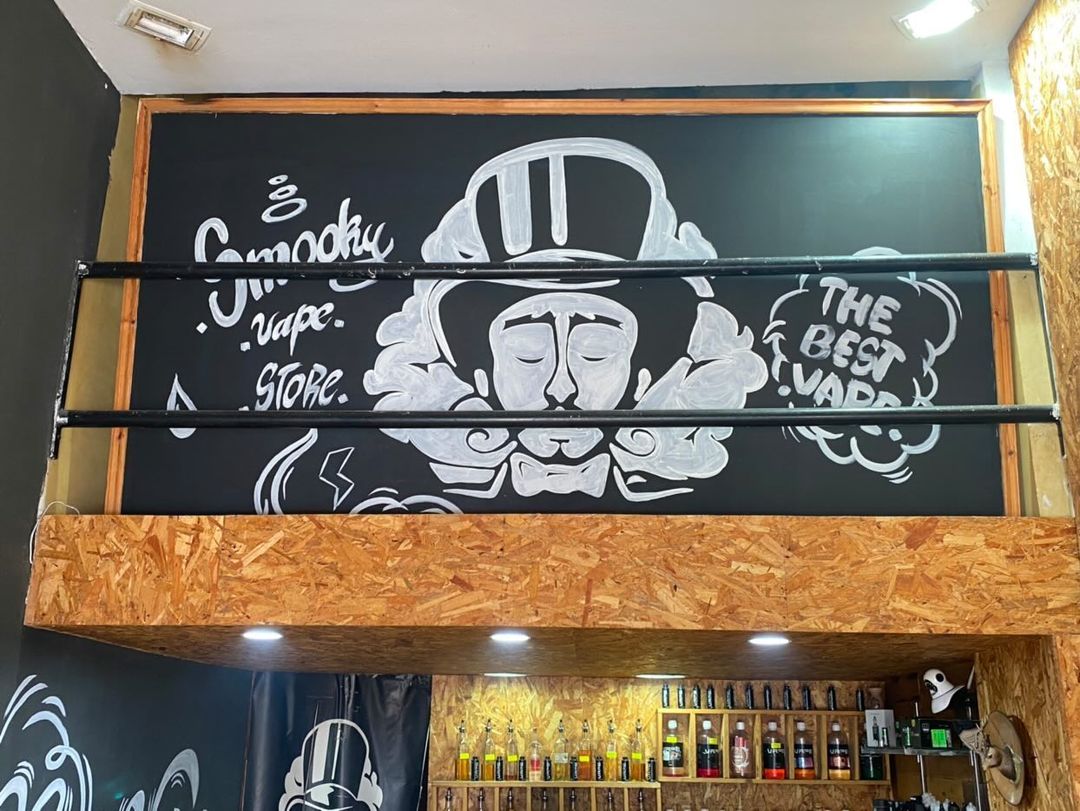 Smooky
Vape.
STORE.
THE
BEST
VAPE.